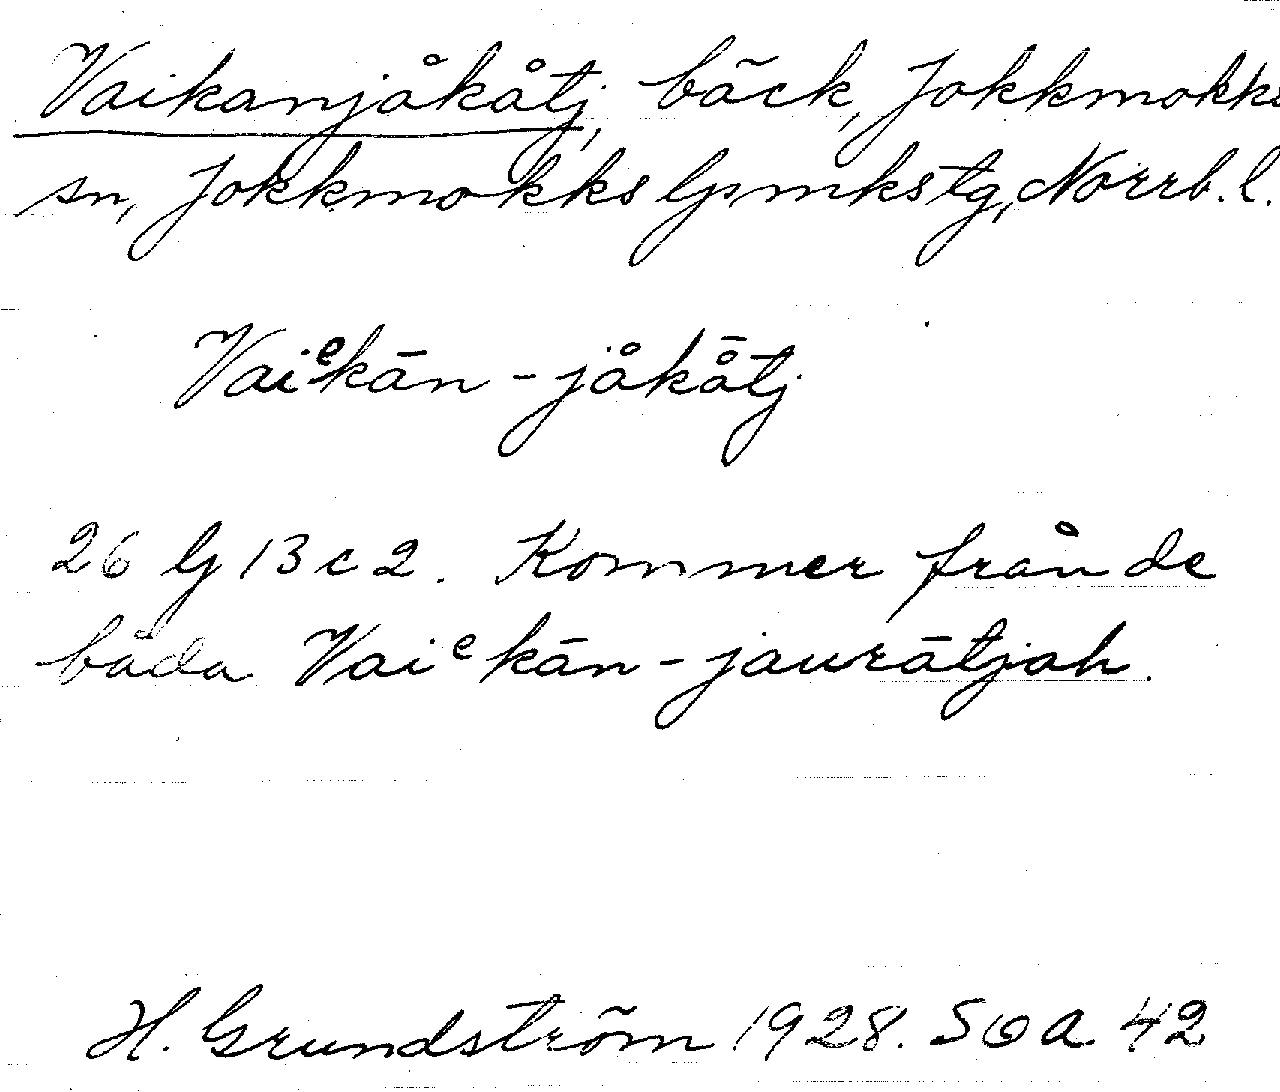 Vaikanjåkåtj, bäck, Jokkmokks
sn, Jokkmokks lpmkstg, Norrb. l.
Vaiᵉkān-jåkå̄tj
26 lj 13 c 2. Kommer från de
båda Vaiᵉkān-jaurātjah.
H. Grundström 1928. SOA 42